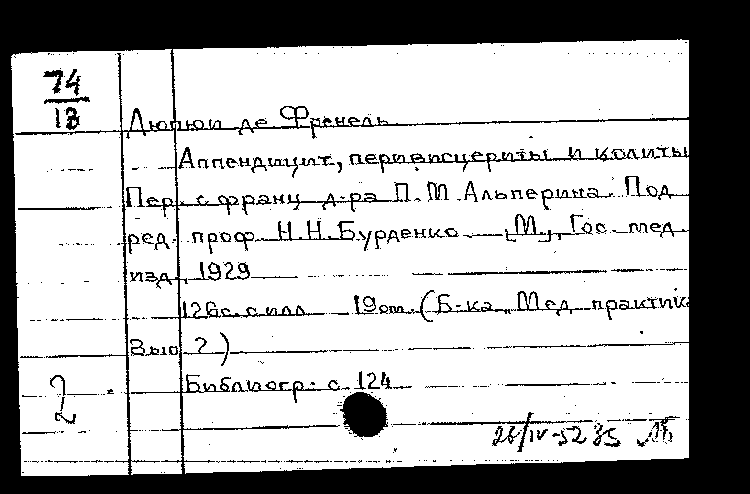 74
13
Дюпюи де Френель
Аппендицит, перивисцериты и колиты
Пер. с франц д-ра П. М. Альперина. Под
ред. проф. Н.Н. Бурденко [М], Гос. мед.
изд., 1929
126с. с илл 19см. (Б-ка Мед. практика
Вып. ?)
Библиогр. с. 124
2
26/IV-52